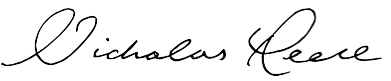 Nicholas Reese